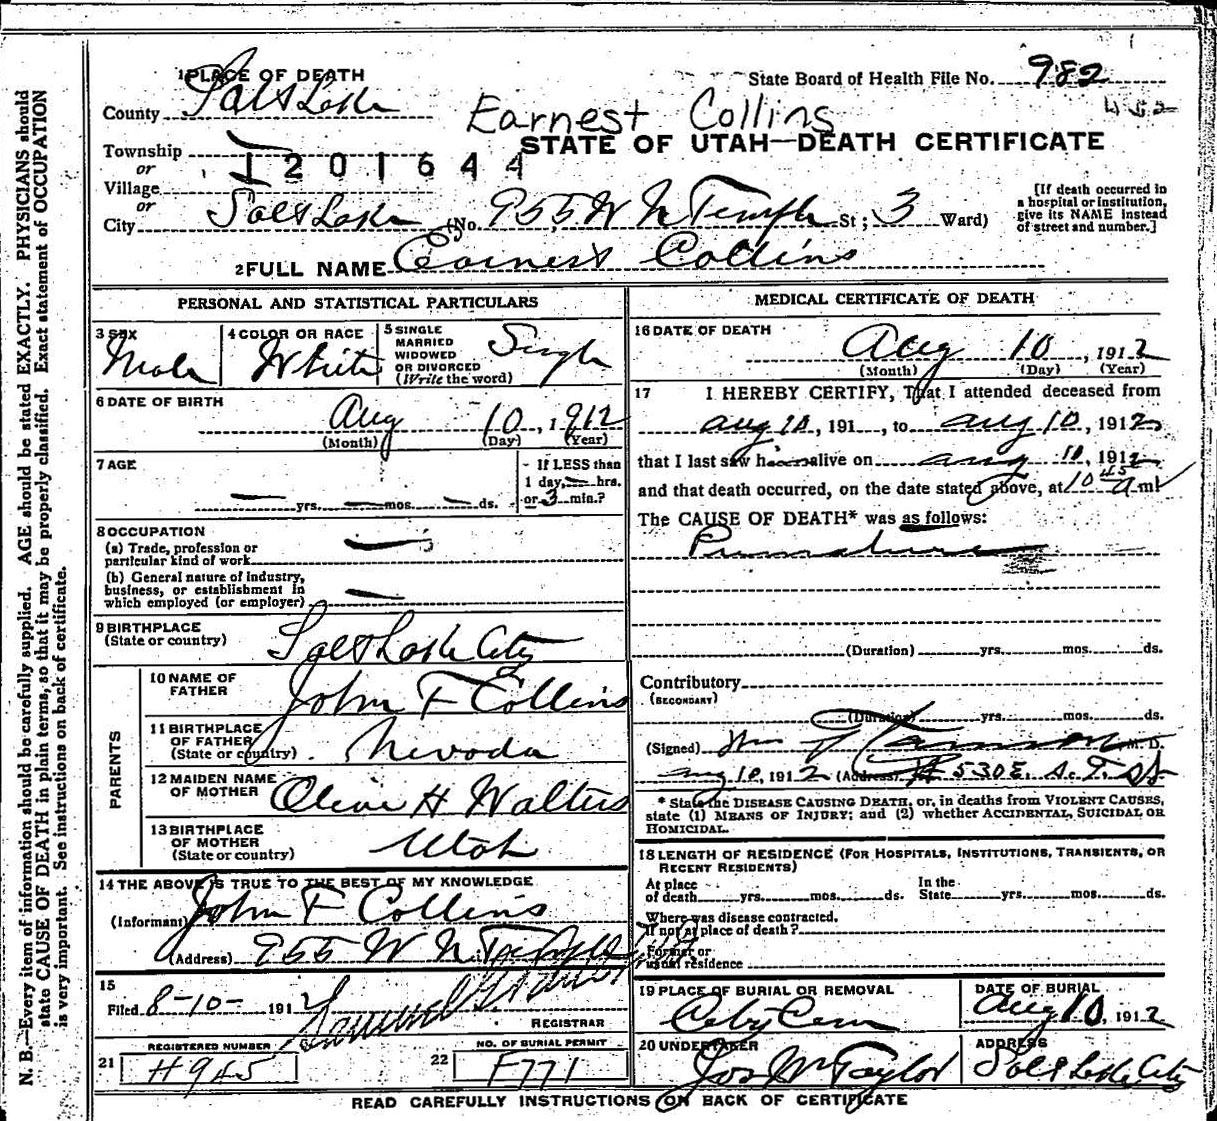 N. B.—Every item of information should be carefully supplied. AGE should be stated EXACTLY. PHYSICIANS should
state CAUSE OF DEATH in plain terms, so that it may be properly classified. Exact statement of OCCUPATION
is very important. See instructions on back of certificate.
1 PLACE OF DEATH
State Board of Health File No. 982
County Salt Lake
Earnest Collins
STATE OF UTAH—DEATH CERTIFICATE
Township
or
1 2 0 1 6 4 4
Village
or
City Salt Lake (No. 955 W N Temple St; 3 Ward)
[If death occurred in
a hospital or institution,
give its NAME instead
of street and number.]
2 FULL NAME Earnest Collins
PERSONAL AND STATISTICAL PARTICULARS
3 SEX Male
4 COLOR OR RACE White
5 SINGLE
MARRIED
WIDOWED
OR DIVORCED
(Write the word) Single
6 DATE OF BIRTH
Aug 10, 1912
(Month) (Day) (Year)
7 AGE
If LESS than
1 day, — hrs.
— yrs. — mos. — ds. or 3 min.?
8 OCCUPATION
(a) Trade, profession or
particular kind of work —
(b) General nature of industry,
business, or establishment in
which employed (or employer) —
9 BIRTHPLACE
(State or country) Salt Lake City
PARENTS
10 NAME OF
FATHER John F Collins
11 BIRTHPLACE
OF FATHER
(State or country) Nevada
12 MAIDEN NAME
OF MOTHER Olive H Walters
13 BIRTHPLACE
OF MOTHER
(State or country) Utah
14 THE ABOVE IS TRUE TO THE BEST OF MY KNOWLEDGE
(Informant) John F Collins
(Address) 955 W N Temple
15
Filed 8-10- 1912
REGISTRAR
REGISTERED NUMBER
21 H945
NO. OF BURIAL PERMIT
22 F771
MEDICAL CERTIFICATE OF DEATH
16 DATE OF DEATH
Aug 10, 1912
(Month) (Day) (Year)
17 I HEREBY CERTIFY, That I attended deceased from
Aug 10, 191 , to Aug 10, 1912
that I last saw h alive on Aug 10, 1912
and that death occurred, on the date stated above, at 10 45 A m
The CAUSE OF DEATH* was as follows:
Premature
(Duration) yrs. mos. ds.
Contributory
(SECONDARY)
(Duration) yrs. mos. ds.
(Signed) Wm M. D.
Aug 10, 1912 (Address) 530 E. So. T. St
* State the DISEASE CAUSING DEATH, or, in deaths from VIOLENT CAUSES,
state (1) MEANS OF INJURY; and (2) whether ACCIDENTAL, SUICIDAL OR
HOMICIDAL.
18 LENGTH OF RESIDENCE (FOR HOSPITALS, INSTITUTIONS, TRANSIENTS, OR
RECENT RESIDENTS)
At place
of death yrs. mos. ds.
In the
State yrs. mos. ds.
Where was disease contracted,
if not at place of death?
Former or
usual residence
19 PLACE OF BURIAL OR REMOVAL
City Cem
DATE OF BURIAL
Aug 10, 1912
20 UNDERTAKER
Jos Wm Taylor
ADDRESS
Salt Lake City
READ CAREFULLY INSTRUCTIONS ON BACK OF CERTIFICATE